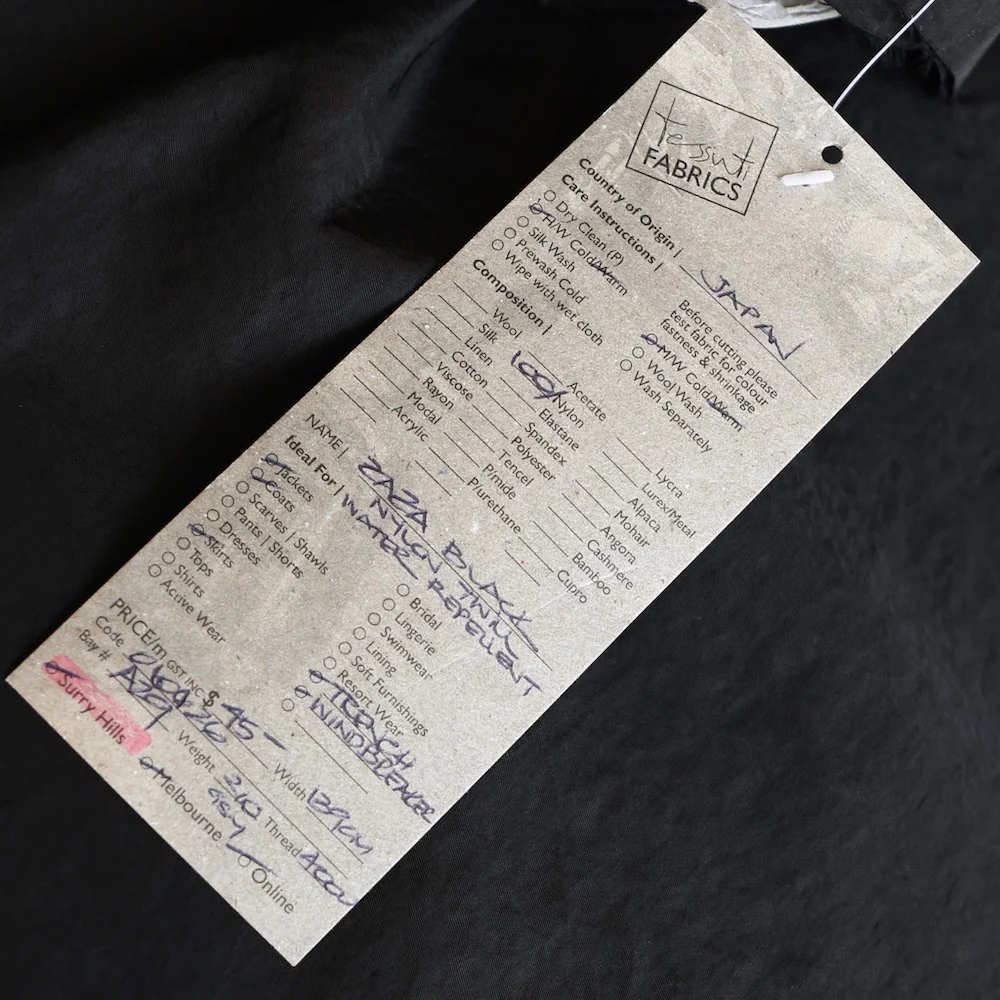 tessuti
FABRICS
Country of Origin | JAPAN
Care Instructions |
Dry Clean (P)
H/W Cold/Warm
Silk Wash
Prewash Cold
Wipe with wet cloth
Before cutting please
test fabric for colour
fastness & shrinkage
M/W Cold/Warm
Wool Wash
Wash Separately
Composition |
Wool
Silk
Linen
Cotton
Viscose
Rayon
Modal
Acrylic
Acetate
100% Nylon
Elastane
Spandex
Polyester
Tencel
P/mide
P/urethane
Lycra
Lurex/Metal
Alpaca
Mohair
Angora
Cashmere
Bamboo
Cupro
NAME | ZAZA BLACK
NYLON TWILL
WATER REPELLENT
Ideal For |
Jackets
Coats
Scarves | Shawls
Pants | Shorts
Dresses
Skirts
Tops
Shirts
Active Wear
Bridal
Lingerie
Swimwear
Lining
Soft Furnishings
Resort Wear
TRENCH
WINDBREAKER
PRICE/m GST INC $ 45-
Code
Bay # A29
Width 139cm
Weight
Thread
Surry Hills
Melbourne
Online